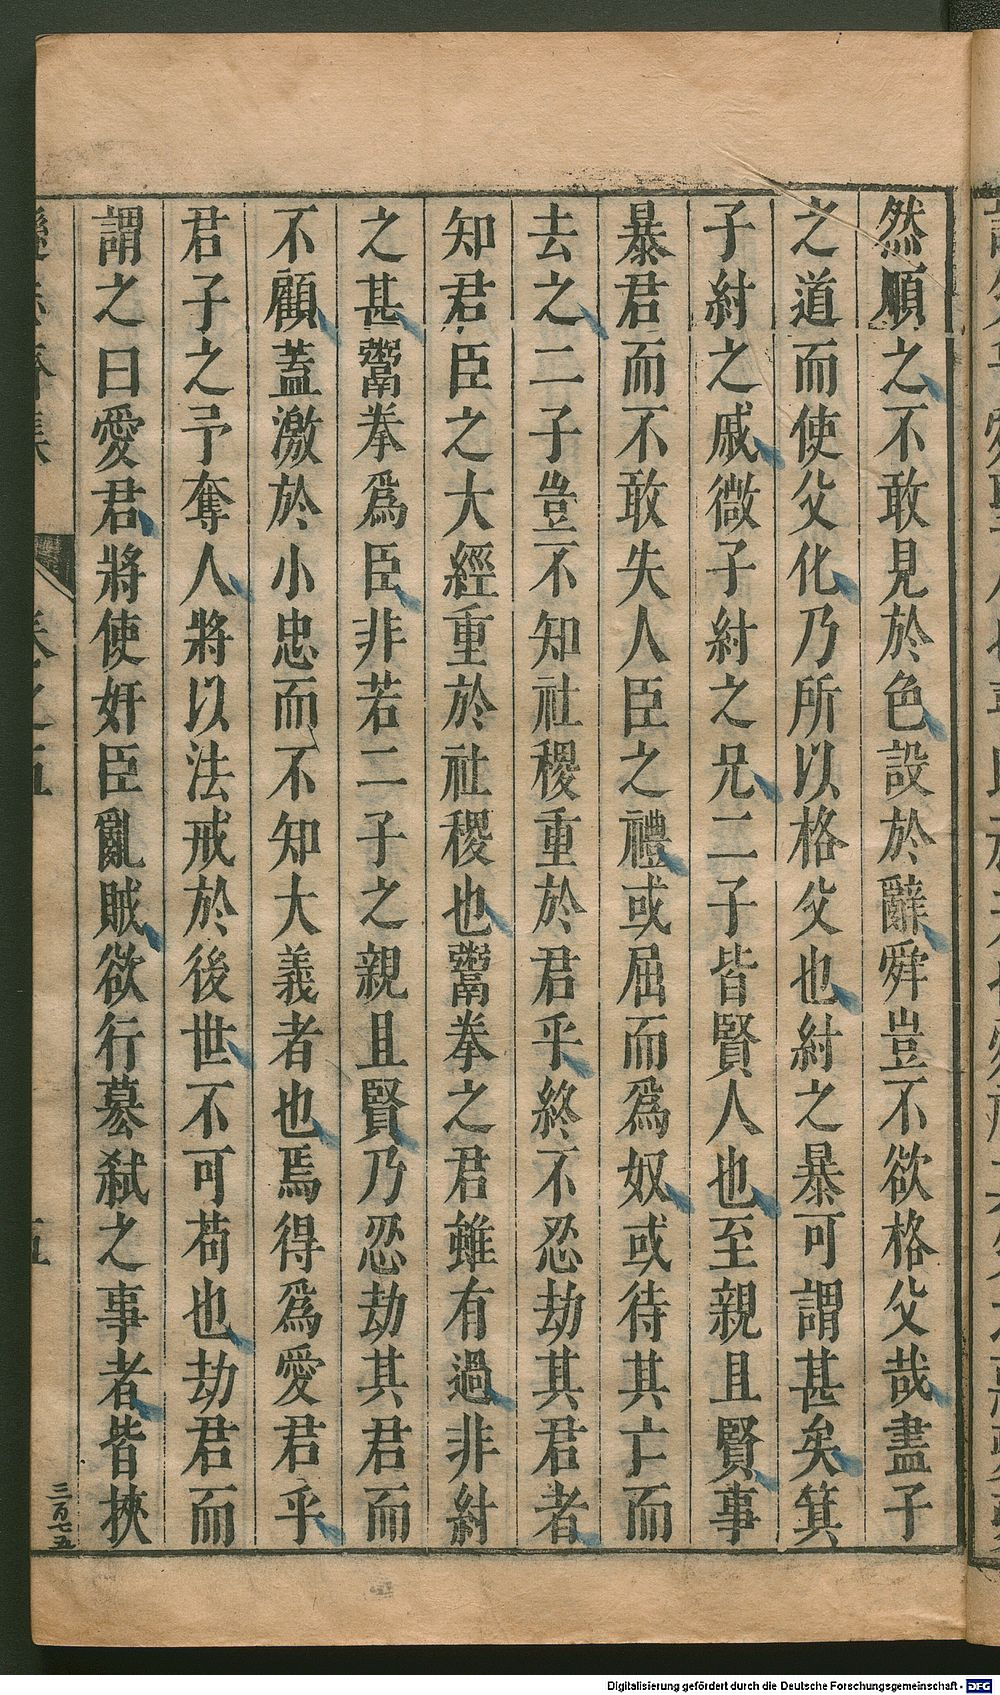 然順之不敢見於色設於辭舜豈不欲格父哉盡子
之道而使父化乃所以格父也紂之暴可謂甚矣箕
子紂之戚微子紂之兄二子皆賢人也至親且賢事
暴君而不敢失人臣之禮或屈而爲奴或待其亡而
去之二子豈不知社稷重於君乎終不忍劫其君者
知君臣之大經重於社稷也鬻拳之君雖有過非紂
之甚鬻拳爲臣非若二子之親且賢乃忍劫其君而
不顧蓋激於小忠而不知大義者也焉得爲愛君乎
君子之予奪人將以法戒於後世不可苟也劫君而
謂之曰愛君將使奸臣亂賊欲行簒弑之事者皆挾
卷之五
五
三百七五
Digitalisierung gefördert durch die Deutsche Forschungsgemeinschaft - DFG